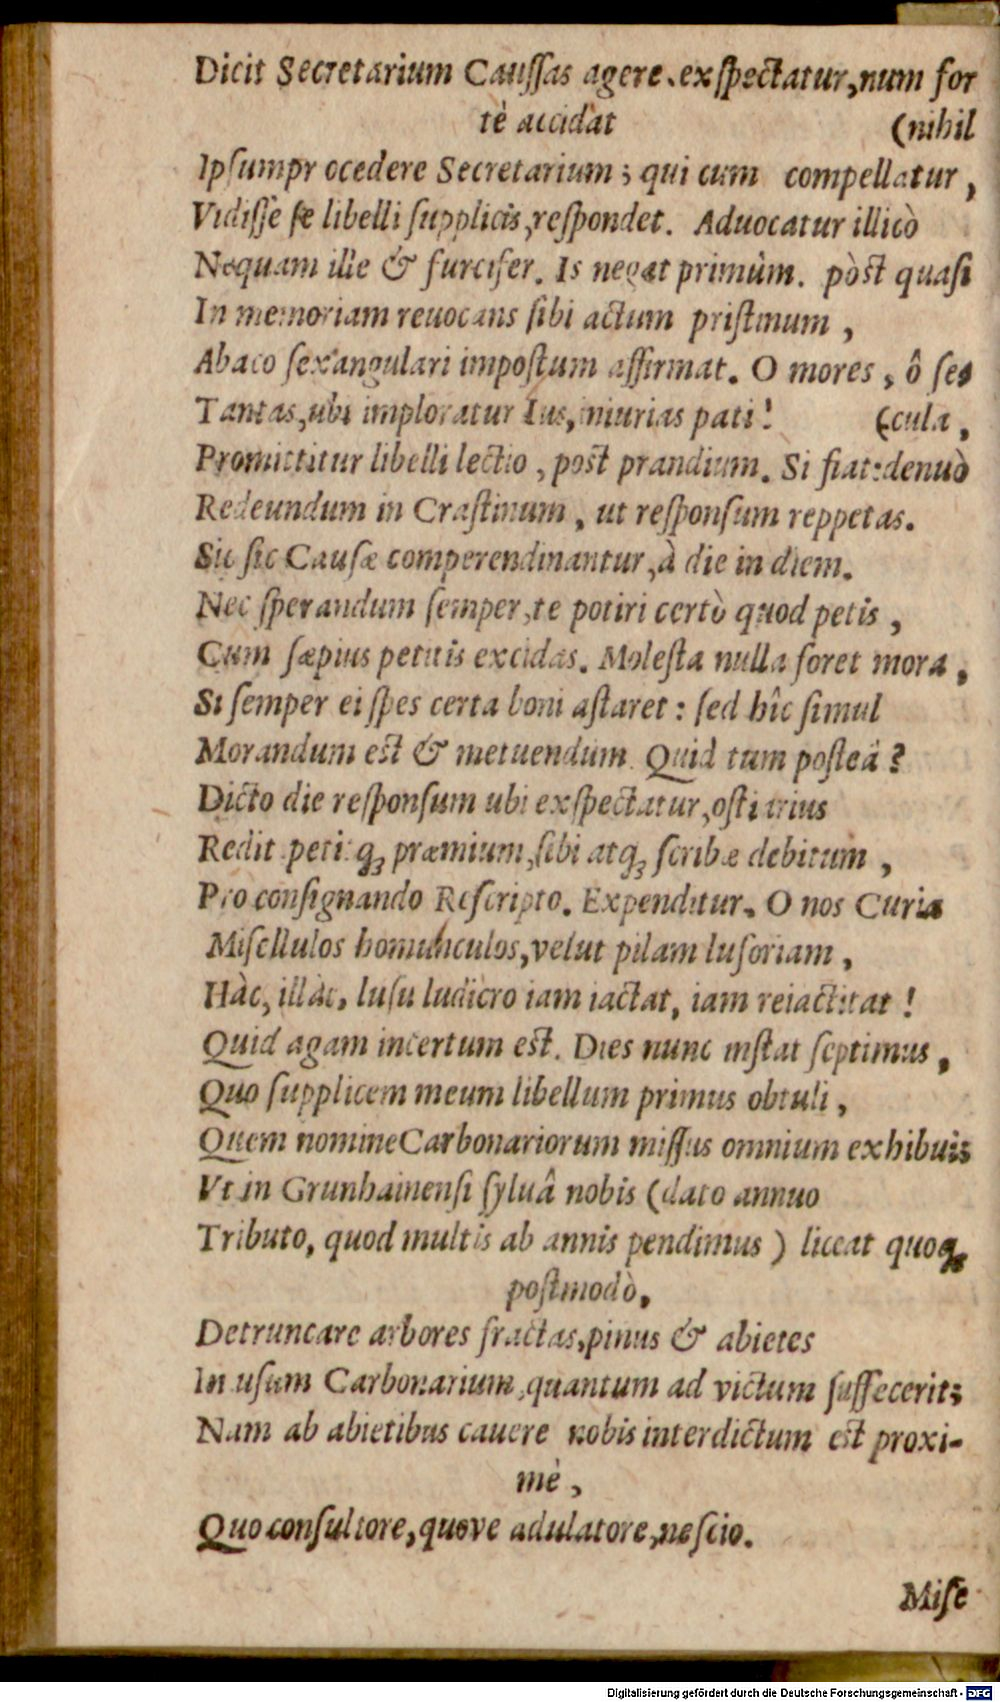 Dicit Secretarium Cauſſas agere. exſpectatur, num for
tè accidat (nihil
Ipſumpr ocedere Secretarium; qui cum compellatur,
Vidiſſe ſe libelli ſupplicis, reſpondet. Aduocatur illicò
Nequam ille & furcifer. Is negat primùm. pòst quaſi
In memoriam reuocans ſibi actum priſtinum,
Abaco ſexangulari impoſtum affirmat. O mores, ô ſe
Tantas, ubi imploratur Ius, iniurias pati! (cula,
Promittitur libelli lectio, post prandium. Si fiat: denuò
Redeundum in Craſtinum, ut reſponſum reppetas.
Sic ſic Cauſæ comperendinantur, à die in diem.
Nec ſperandum ſemper, te potiri certò quod petis,
Cum ſæpius petitis excidas. Moleſta nulla foret mora,
Si ſemper ei ſpes certa boni aſtaret: ſed hîc ſimul
Morandum est & metuendum. Quid tum poſteà?
Dicto die reſponſum ubi exſpectatur, oſtiarius
Redit petitq; præmium, ſibi atq; ſcribæ debitum,
Pro conſignando Reſcripto. Expenditur. O nos Curia
Miſellulos homunculos, velut pilam luſoriam,
Hàc, illàc, luſu ludicro iam iactat, iam reiactitat!
Quid agam incertum est. Dies nunc inſtat ſeptimus,
Quo ſupplicem meum libellum primus obtuli,
Quem nomineCarbonariorum miſſus omnium exhibui;
Vt in Grunhainenſi ſyluâ nobis (dato annuo
Tributo, quod multis ab annis pendimus) liceat quoq;
poſtmodò,
Detruncare arbores fractas, pinus & abietes
In uſum Carbonarium, quantum ad victum ſuffecerit;
Nam ab abietibus cauere nobis interdictum est proxi-
mè,
Quo conſultore, quove adulatore, neſcio.
Miſe
Digitalisierung gefördert durch die Deutsche Forschungsgemeinschaft - DFG